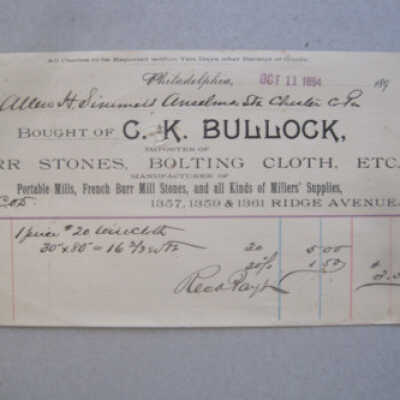 All Claims to be Reported within Ten Days after Receipt of Goods.
Philadelphia, OCT 11 1894 189
Allen H. Simmers Anselma Sta Chester Co Pa
BOUGHT OF C. K. BULLOCK,
IMPORTER OF
RR STONES, BOLTING CLOTH, ETC
MANUFACTURER OF
Portable Mills, French Burr Mill Stones, and all Kinds of Millers' Supplies,
COD. 1357, 1359 & 1361 RIDGE AVENUE,
1 piece # 20 Wirecloth
30" x 80" = 16 2/3 20 5.00
20% 1.50 $
Recd Payt